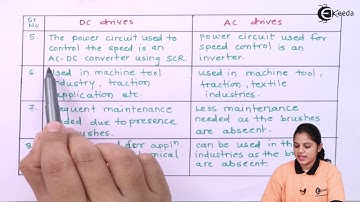 Sr No
DC drives
AC drives
5.
The power circuit used to
control the speed is an
AC-DC converter using SCR.
power circuit used for
speed control is an
inverter.
6.
Used in machine tool
industry, traction
application etc.
used in machine tool,
traction, textile
industries.
7.
maintenance
due to presence
Less maintenance
needed as the brushes
are absent.
8
appln
can be used in the
industries as the
are absent.
Ekeeda